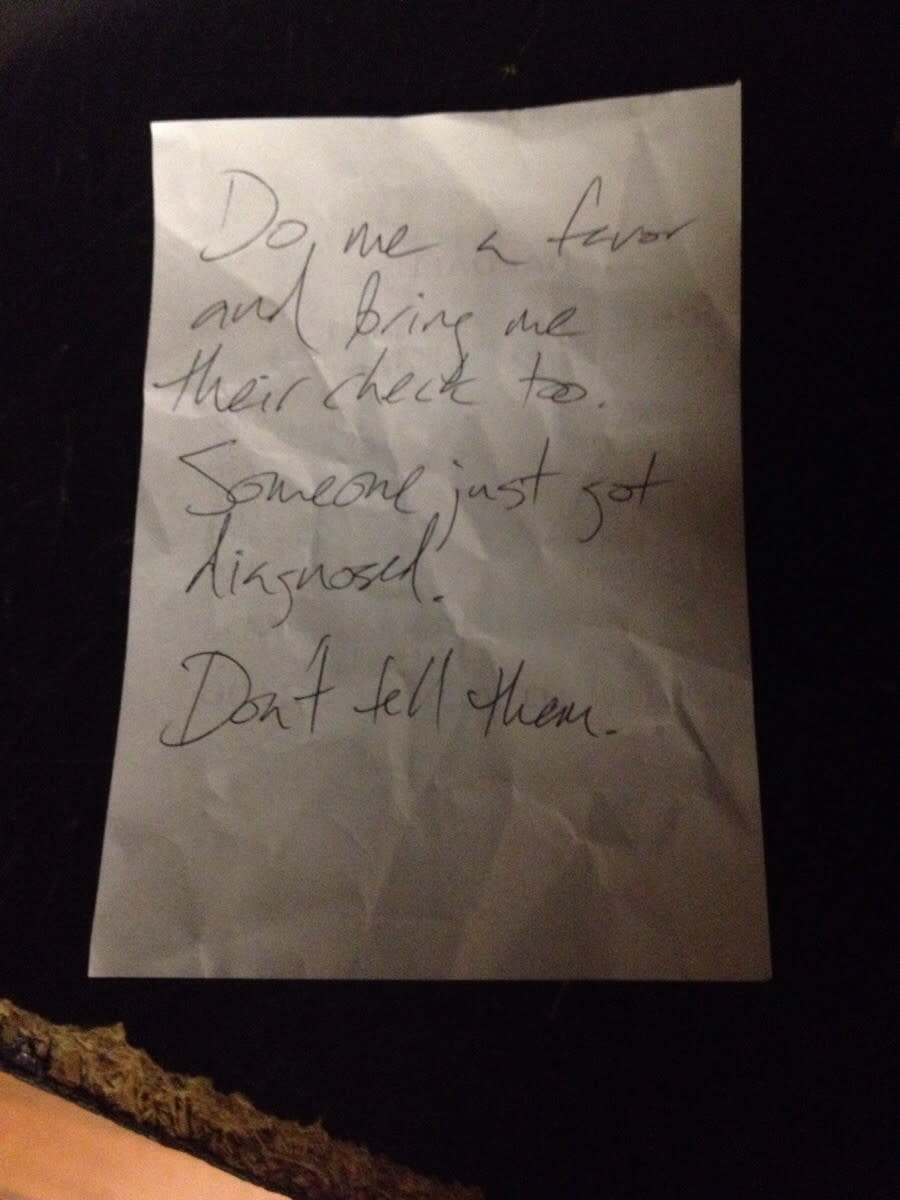 Do me a favor
and bring me
their check too.
Someone just got
diagnosed.
Don't tell them.